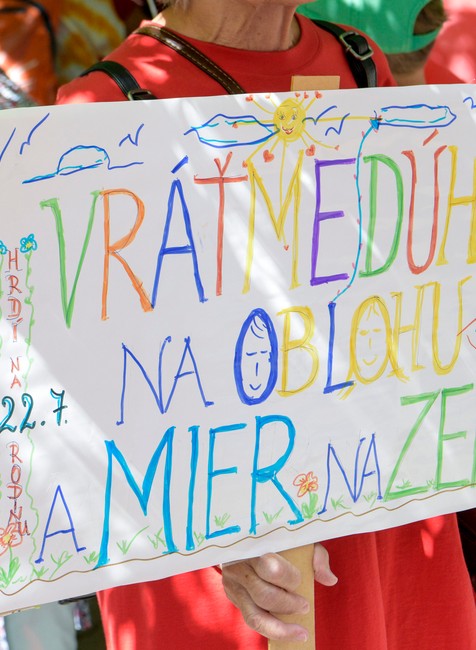 VRÁŤME DÚH
NA OBLOHU
A MIER NA ZE
HRDÍ NA RODNÚ
22.7.